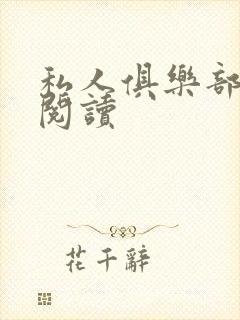 私人俱樂部
閱讀
花千辭